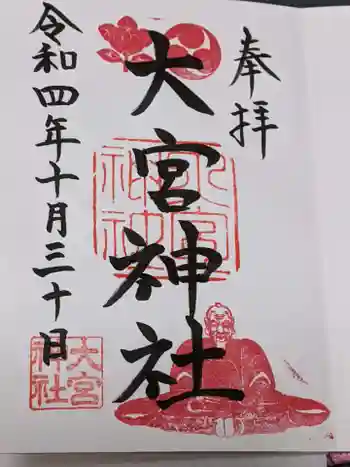 奉拝
大宮神社
令和四年十月三十日
大宮神社
大宮神社